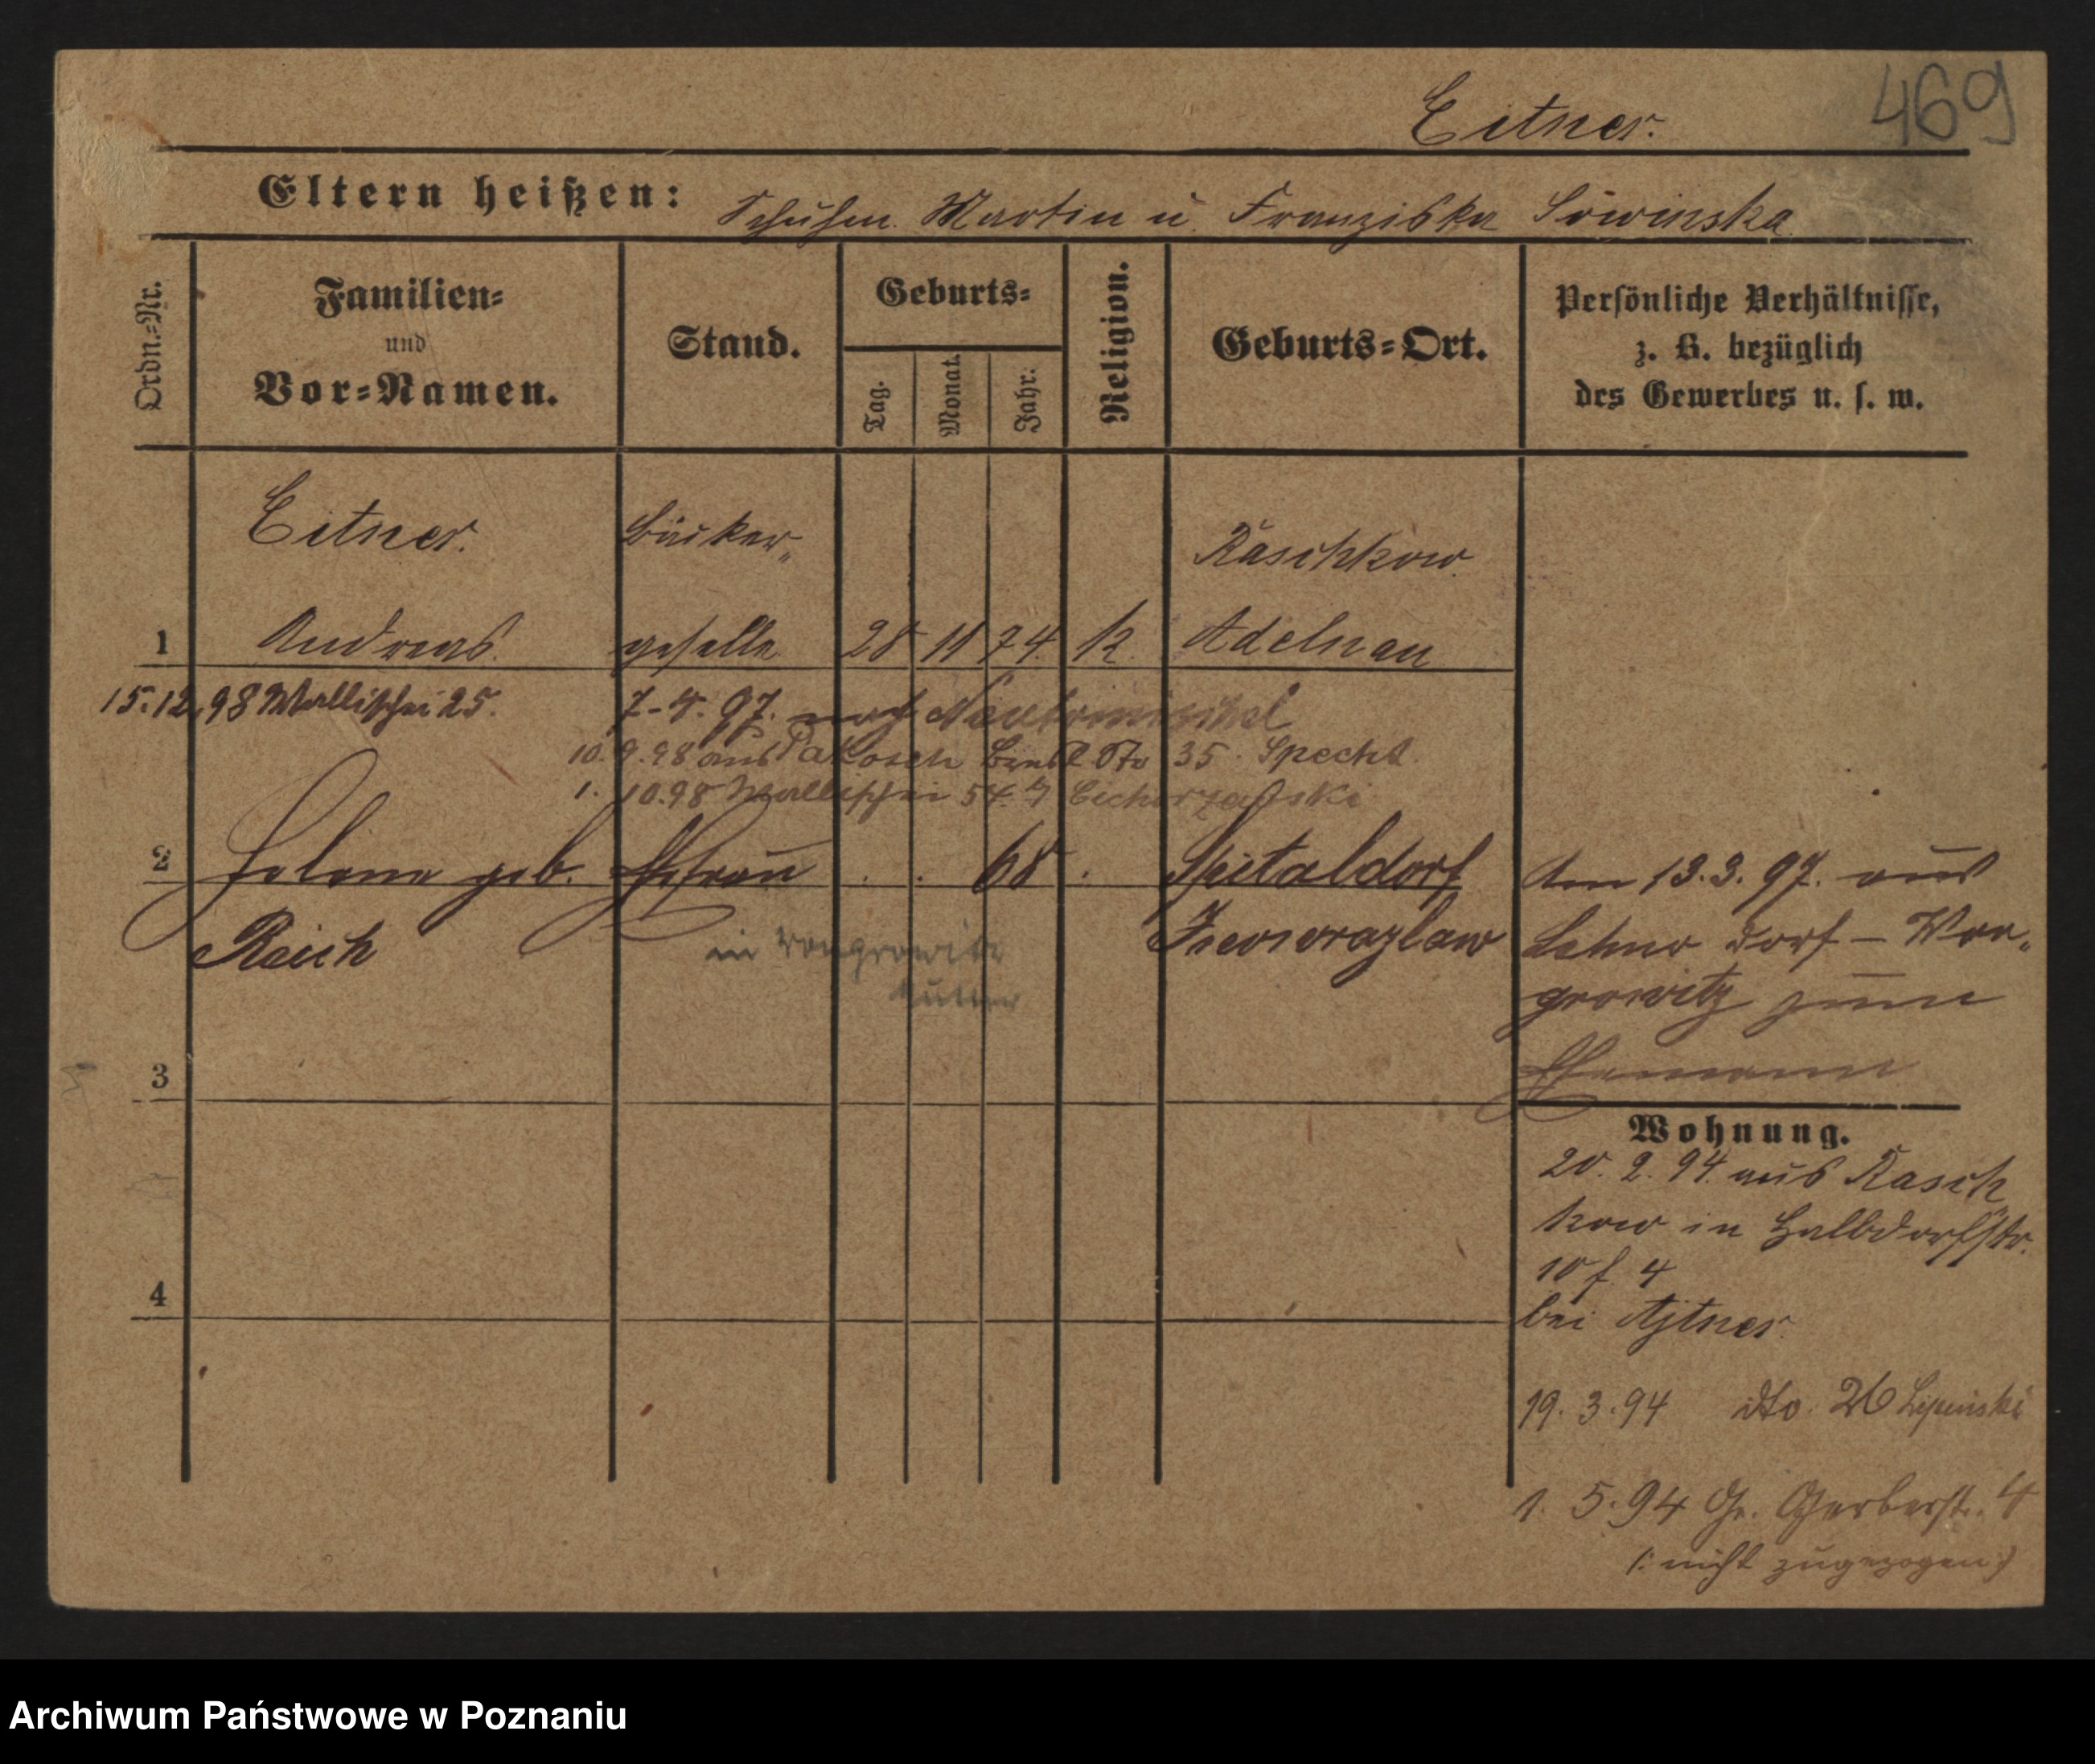 469
Eitner.
Eltern heißen: Schuhm. Martin u. Franziska Sówinska
Ordn.=Nr.
Familien=
und
Vor=Namen.
Stand.
Geburts=
Tag.
Monat.
Jahr.
Religion.
Geburts=Ort.
Persönliche Verhältnisse,
z. B. bezüglich
des Gewerbes u. s. w.
Eitner. Bäcker„ Raschkow.
1 Andreas. geselle 28 11 74. k. Adelnau
15.12.98 Wallischei 25. 7-4.97. nach
10.9.98 aus Pakosch 35. Specht
1.10.98 Wallischei 54
2 Helene geb. Ehefrau . . 68 . Spitaldorf
Reich Inowrazlaw
in Wongrowitz
Am 13.3.97. aus
dorf – Won„
growitz zum
Ehemann
3
4
Wohnung.
20.2.94. aus Rasch
kow in Halbdorfstr.
10 f. 4
bei Ajtner.
19.3.94 dto. 26 Lipinski
1.5.94 Gr. Gerberst. 4
(: nicht zugezogen :)
Archiwum Państwowe w Poznaniu